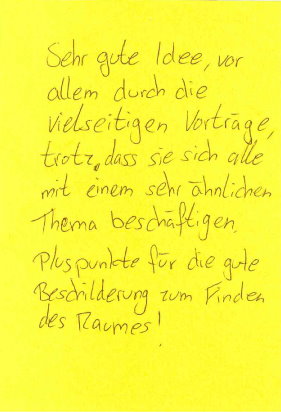 Sehr gute Idee, vor
allem durch die
vielseitigen Vorträge,
trotz, dass sie sich alle
mit einem sehr ähnlichen
Thema beschäftigen.
Pluspunkte für die gute
Beschilderung zum Finden
des Raumes!